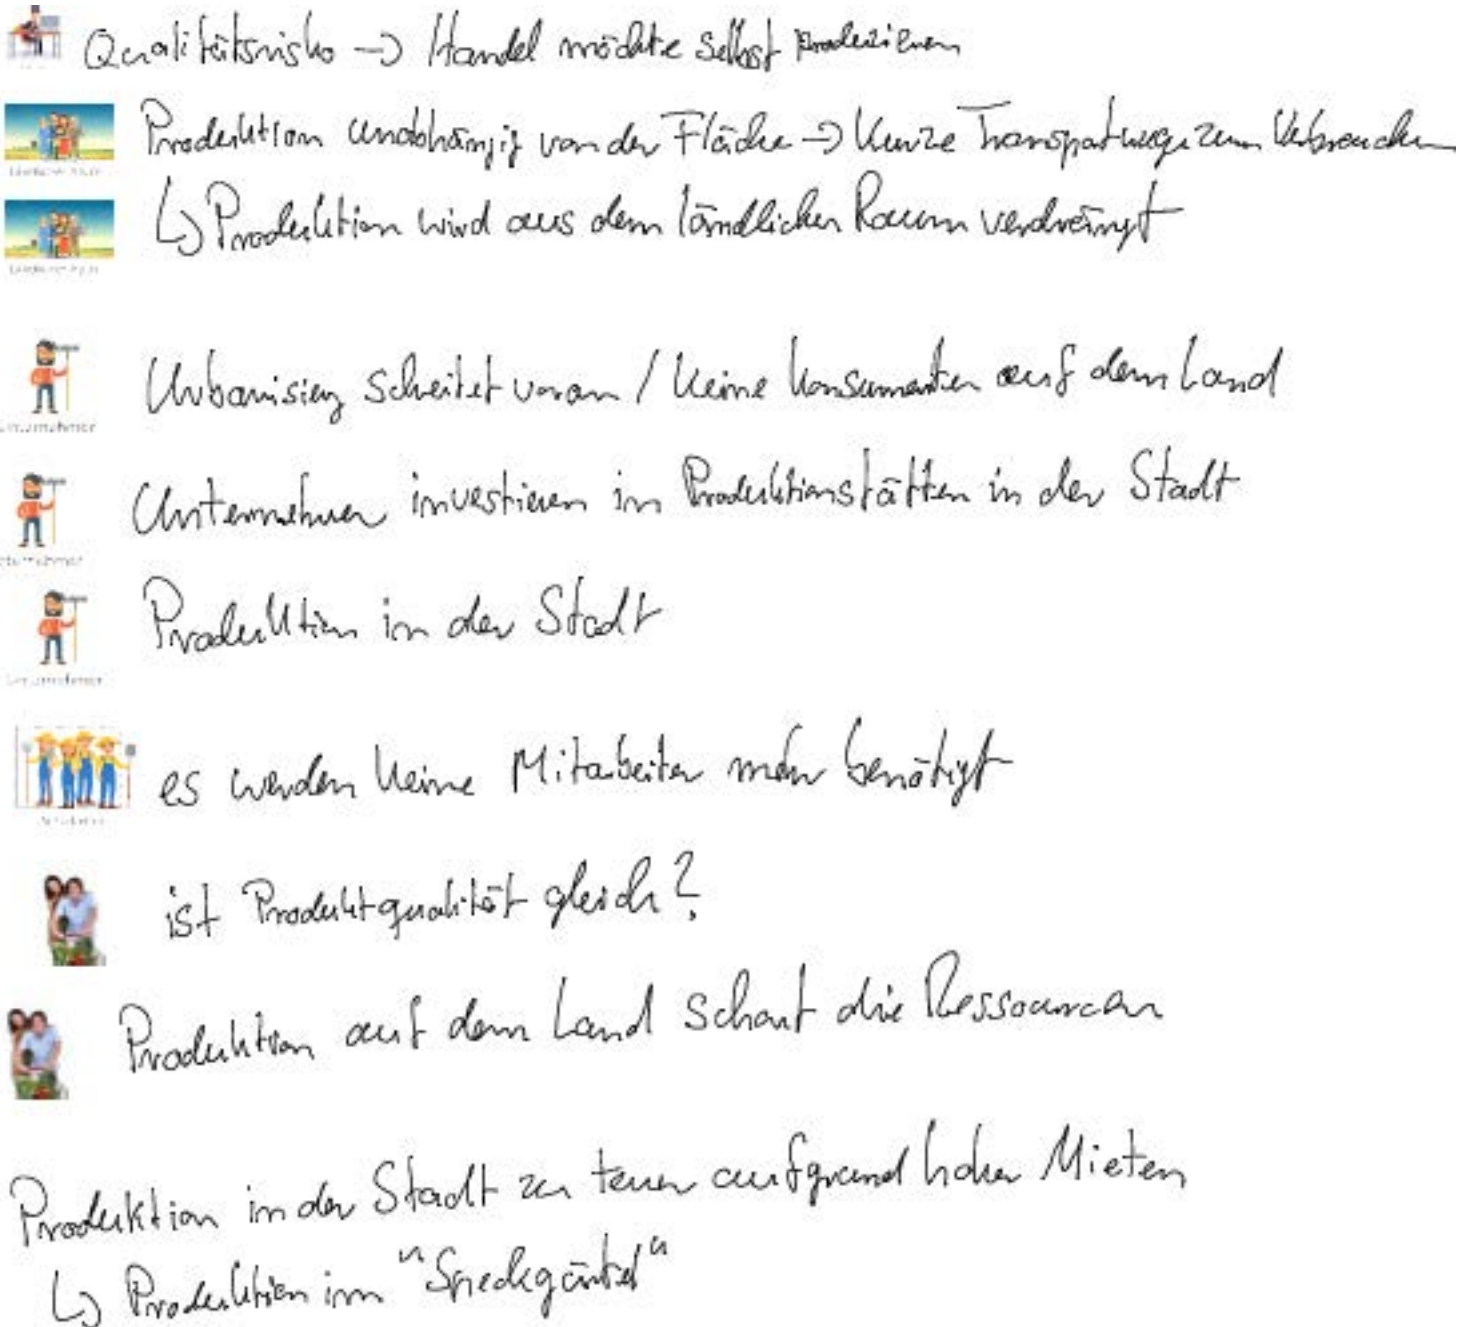 Qualitätsrisko -> Handel möchte selbst produzieren
Produktion unabhängig von der Fläche -> kurze Transportwege zum Verbraucher
↳ Produktion wird aus dem ländlichen Raum verdrängt
Urbanisierg schreitet voran / keine Konsumenten auf dem Land
Unternehmer
Unternehmer investieren in Produktionstätten in der Stadt
Produktion in der Stadt
es werden keine Mitarbeiter mehr benötigt
ist Produktqualität gleich?
Produktion auf dem Land schont die Ressourcen
Produktion in der Stadt zu teuer aufgrund hoher Mieten
↳ Produktion im "Speckgürtel"